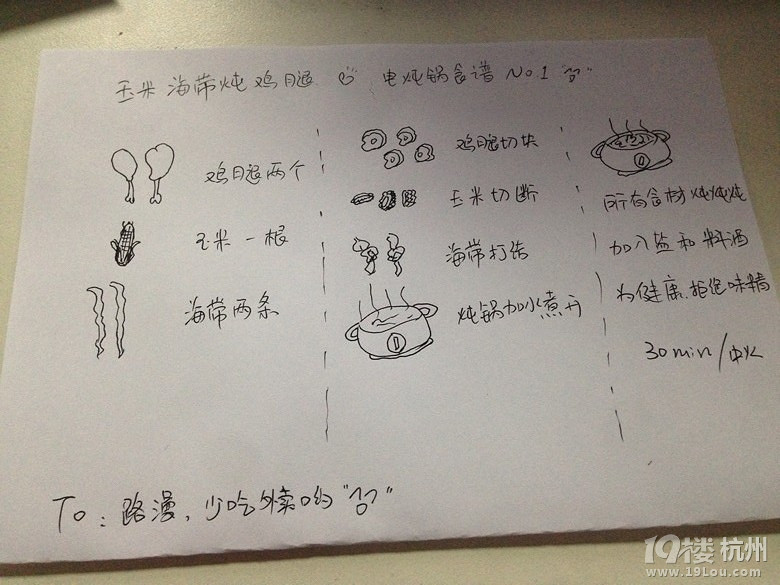 玉米海带炖鸡腿 电炖锅食谱 No.1
鸡腿两个
玉米一根
海带两条
鸡腿切块
玉米切断
海带打结
炖锅加水煮开
所有食材炖炖炖
加入盐和料酒
为健康.拒绝味精
30min/中火
To: 路漫，少吃外卖哟
19楼 杭州
www.19lou.com